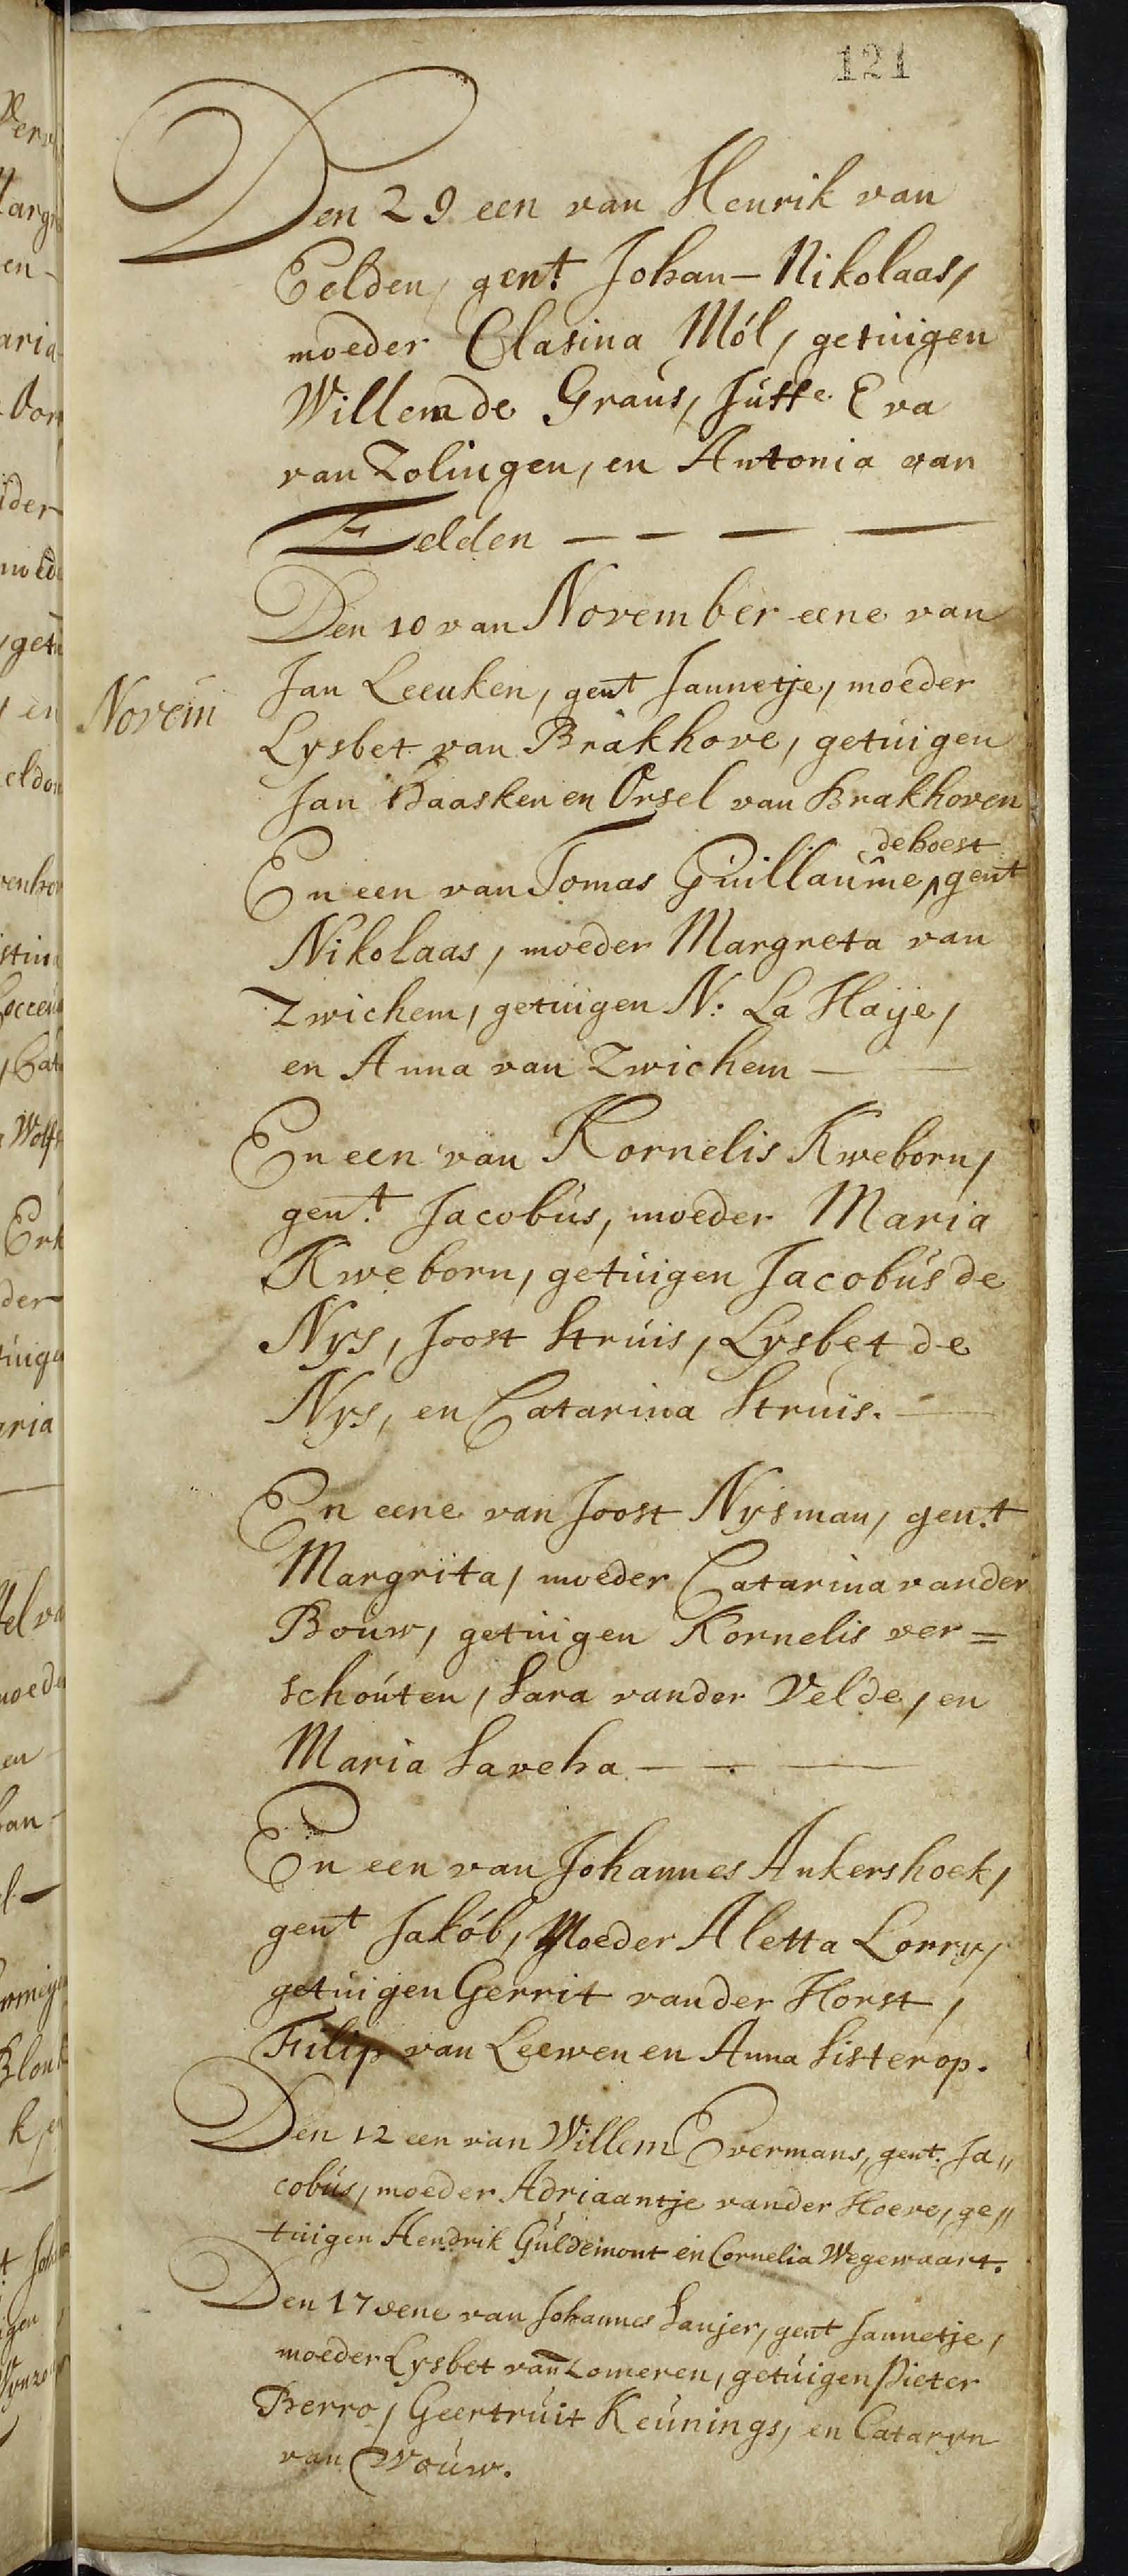 121
Den 29 een van Henrik van
Eelden, gent. Johan-Nikolaas,
moeder Clasina Mól, getuigen
Willem de Graus, Juffe Eva
van Zolingen, en Antonia van
Eelden - - - -
Den 10 van November eene van
Novem
Jan Leeuken, gent Jannetje, moeder
Lysbet van Brakhove, getuigen
Jan Baasken en Orsel van Brakhoven
dehoest
En een van Tomas Guillaume, gent
Nikolaas, moeder Margreta van
Zwichem, getuigen N: La Haije,
en Anna van Zwichem - -
En een van Kornelis Kweborn,
gent. Jacobus, moeder Maria
Kweborn, getuigen Jacobus de
Nys, Joost Struis, Lysbet de
Nys, en Catarina Struis. -
En eene van Joost Nysman, gent
Margrita, moeder Catarina vander
Bouw, getuigen Kornelis ver=
schouten, Sara vander Velde, en
Maria Saveha - - -
En een van Johannes Ankershoek,
gent Jakób, Moeder Aletta Lorry,
getuigen Gerrit vander Horst,
Filip van Leewen en Anna Sisterop.
Den 12 een van Willem Evermans, gent. Ja„
cobus, moeder Adriaantje vander Hoeve, ge„
tuigen Hendrik Guldemont en Cornelia Wegewaart.
Den 17 eene van Johannes Sanjer, gent Jannetje,
moeder Lysbet van Zomeren, getuigen Pieter
Berro, Geertruit Keunings, en Cataryn
van Wouw.